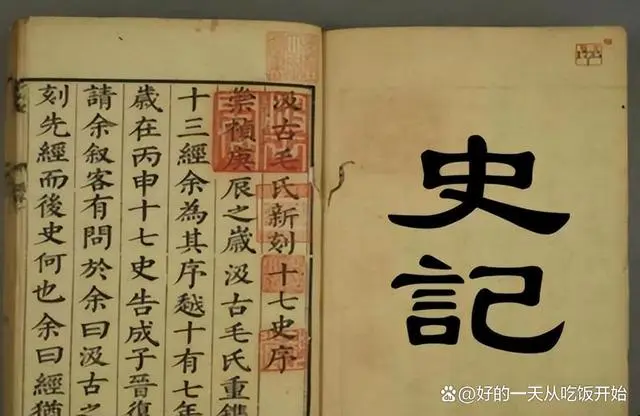 史記
汲古毛氏新刻十七史序
崇禎庚辰之歲汲古毛氏重鐫
十三經余為其序越十有七年
歲在丙申十七史告成子晉復
請余叙客有問於余曰汲古之
刻先經而後史何也余曰經猶
@好的一天从吃饭开始